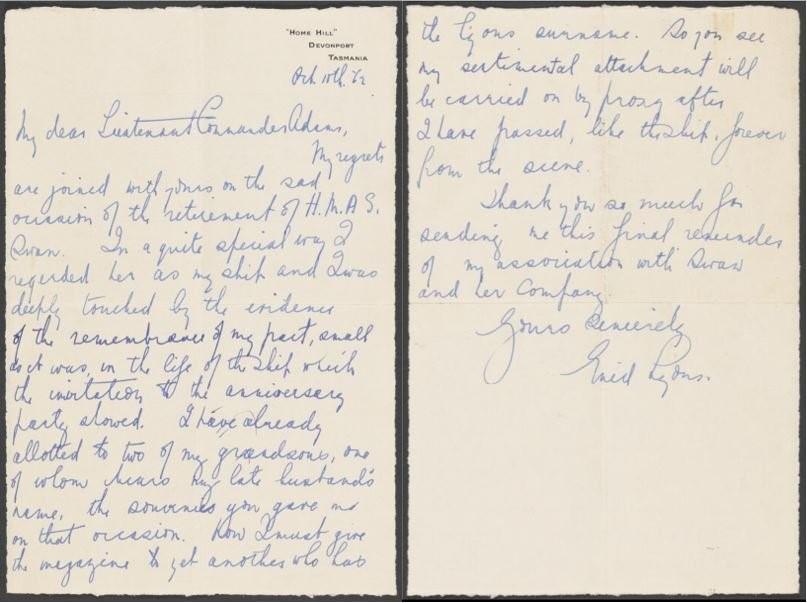 "HOME HILL"
DEVONPORT
TASMANIA
Oct. 10th. 62
My dear Lieutenant Commander Adams,
My regrets
are joined with yours on the sad
occasion of the retirement of H.M.A.S.
Swan. In a quite special way I
regarded her as my ship and I was
deeply touched by the evidence
of the remembrance of my part, small
as it was, in the life of the ship which
the invitation to the anniversary
party showed. I have already
allotted to two of my grandsons, one
of whom bears my late husband's
name, the souvenirs you gave me
on that occasion. Now I must give
the magazine to yet another who has
the Lyons surname. So you see
my sentimental attachment will
be carried on by proxy after
I have passed, like the ship, forever
from the scene.
Thank you so much for
sending me this final reminder
of my association with Swan
and her company.
Yours sincerely
Enid Lyons.